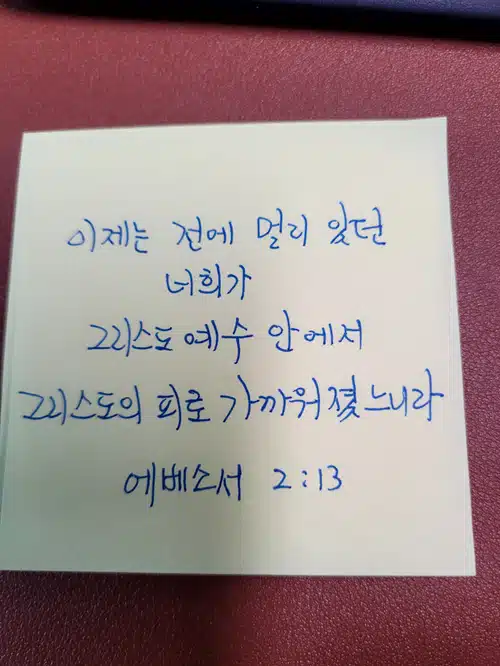 이제는 전에 멀리 있던
너희가
그리스도 예수 안에서
그리스도의 피로 가까워졌느니라
에베소서 2:13